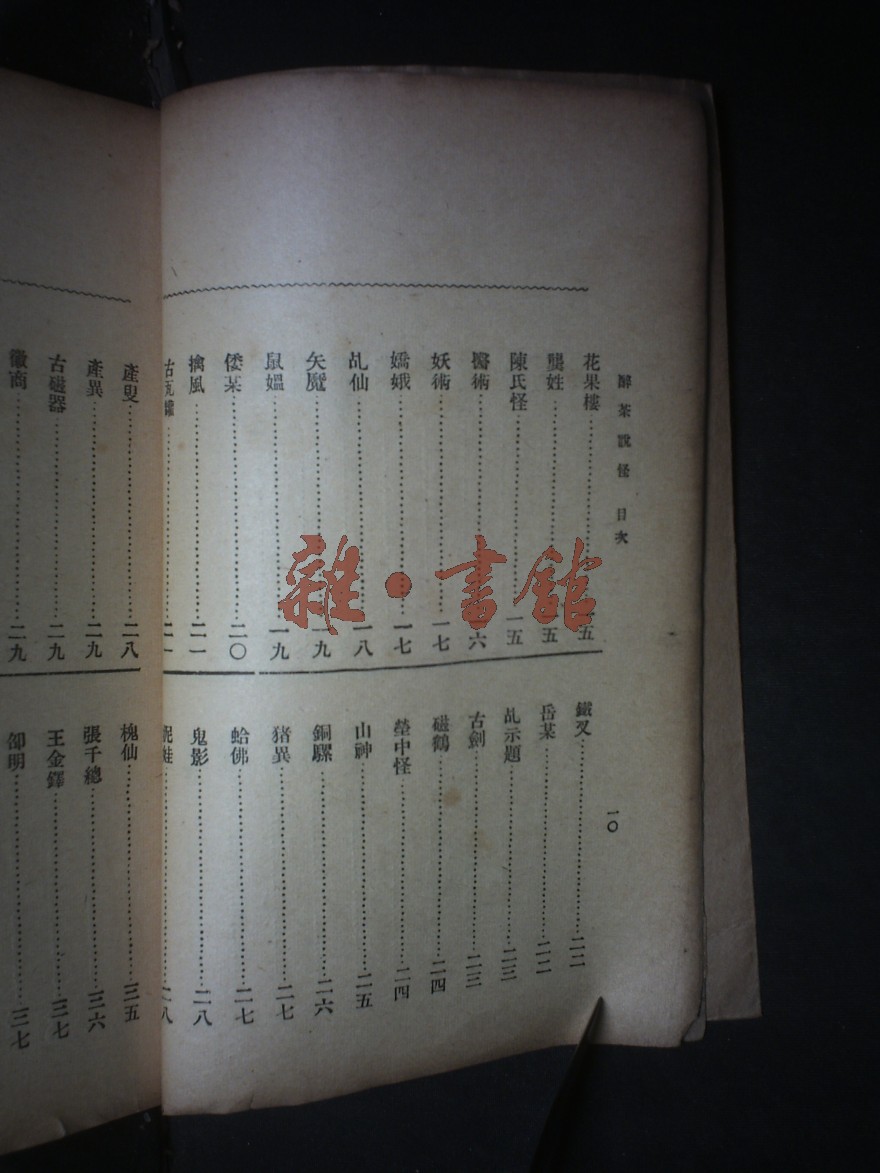 醉茶說怪　目次
一〇
花果樓……一五
龔姓……一五
陳氏怪……一五
醫術……一六
妖術……一七
嬌娥……一七
乩仙……一八
矢魔……一九
鼠媼……一九
倭某……二〇
擒風……二一
古瓦罐……二一
鐵叉……二二
岳某……二二
乩示題……二三
古劍……二三
磁鶴……二四
塋中怪……二四
山神……二五
銅騾……二六
猪異……二七
蛤佛……二七
鬼影……二八
泥娃……二八
產叟……二八
產異……二九
古磁器……二九
徽商……二九
槐仙……三五
張千總……三六
王金鐸……三七
邵明……三七
雜·書館